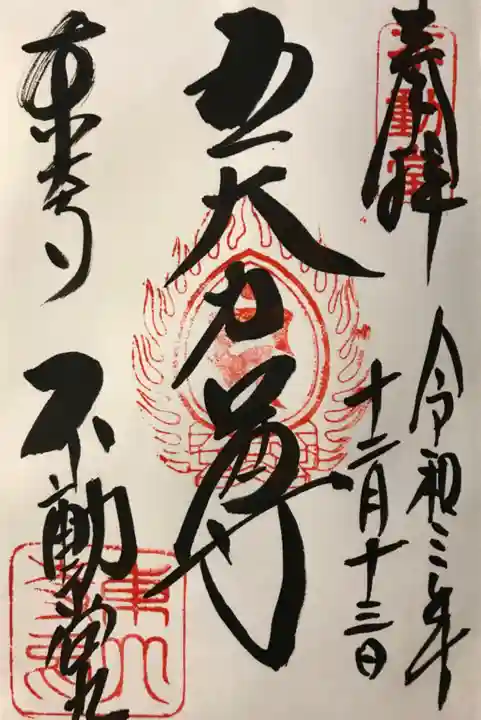 奉拝
不動堂
令和三年
十二月十三日
五大力
東大寺
不動堂